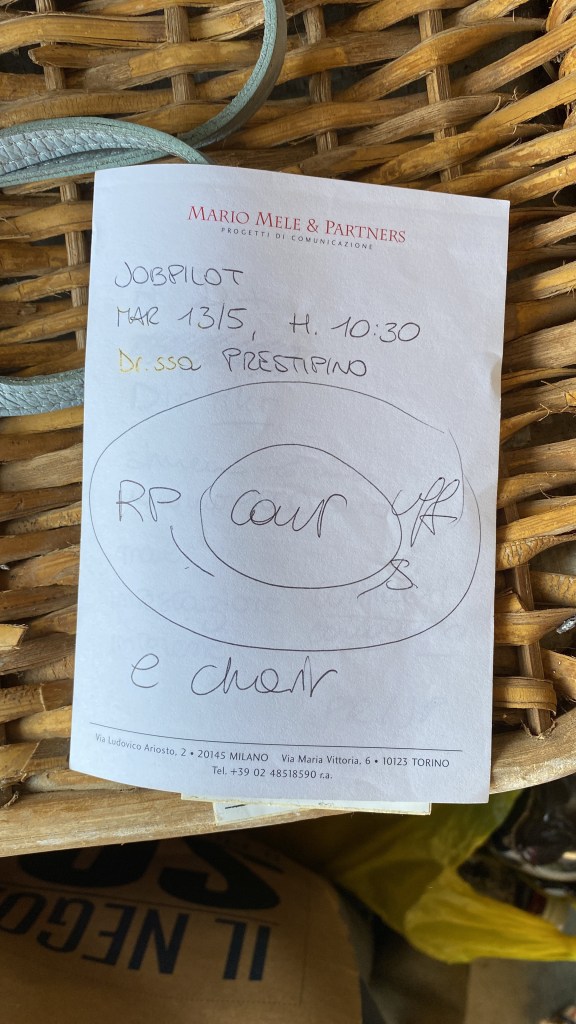 MARIO MELE & PARTNERS
PROGETTI DI COMUNICAZIONE
JOBPILOT
MAR 13/5, H. 10:30
Dr.ssa PRESTIPINO
RP
uff
s.
e
Via Ludovico Ariosto, 2 • 20145 MILANO Via Maria Vittoria, 6 • 10123 TORINO
Tel. +39 02 48518590 r.a.
IL NEGO